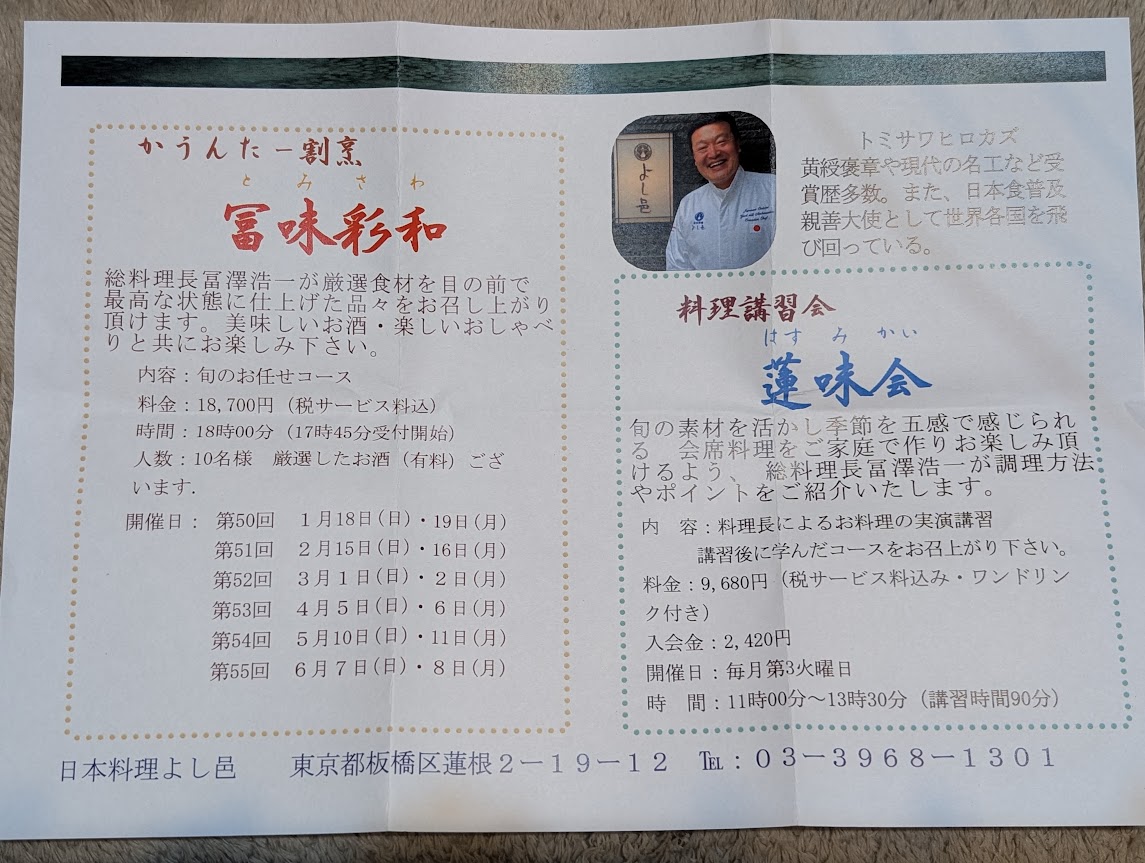 かうんたー割烹
とみさわ
冨味彩和
総料理長冨澤浩一が厳選食材を目の前で
最高な状態に仕上げた品々をお召し上がり
頂けます。美味しいお酒・楽しいおしゃべ
りと共にお楽しみ下さい。
内容：旬のお任せコース
料金：18,700円（税サービス料込）
時間：18時00分（17時45分受付開始）
人数：10名様　厳選したお酒（有料）ござ
います.
開催日：　第50回　１月18日(日)・19日(月)
第51回　２月15日(日)・16日(月)
第52回　３月１日(日)・２日(月)
第53回　４月５日(日)・６日(月)
第54回　５月10日(日)・11日(月)
第55回　６月７日(日)・８日(月)
よし邑
トミサワヒロカズ
黄綬褒章や現代の名工など受
賞歴多数。また、日本食普及
親善大使として世界各国を飛
び回っている。
料理講習会
はすみかい
蓮味会
旬の素材を活かし季節を五感で感じられ
る　会席料理をご家庭で作りお楽しみ頂
けるよう、　総料理長冨澤浩一が調理方法
やポイントをご紹介いたします。
内　容：料理長によるお料理の実演講習
講習後に学んだコースをお召上がり下さい。
料金：9,680円（税サービス料込み・ワンドリン
ク付き）
入会金：2,420円
開催日：毎月第3火曜日
時　間：11時00分～13時30分（講習時間90分）
日本料理よし邑　　東京都板橋区蓮根２－１９－１２　℡：０３－３９６８－１３０１